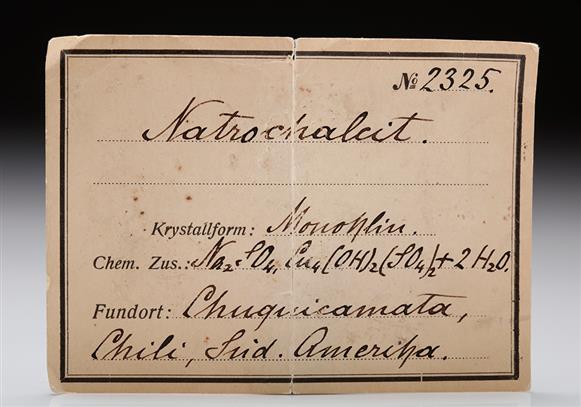 № 2325.
Natrochalcit.
Krystallform: Monoklin.
Chem. Zus.: Na₂SO₄, Cu₄(OH)₂(SO₄)₂+2H₂O.
Fundort: Chuquicamata,
Chili, Süd. Amerika.